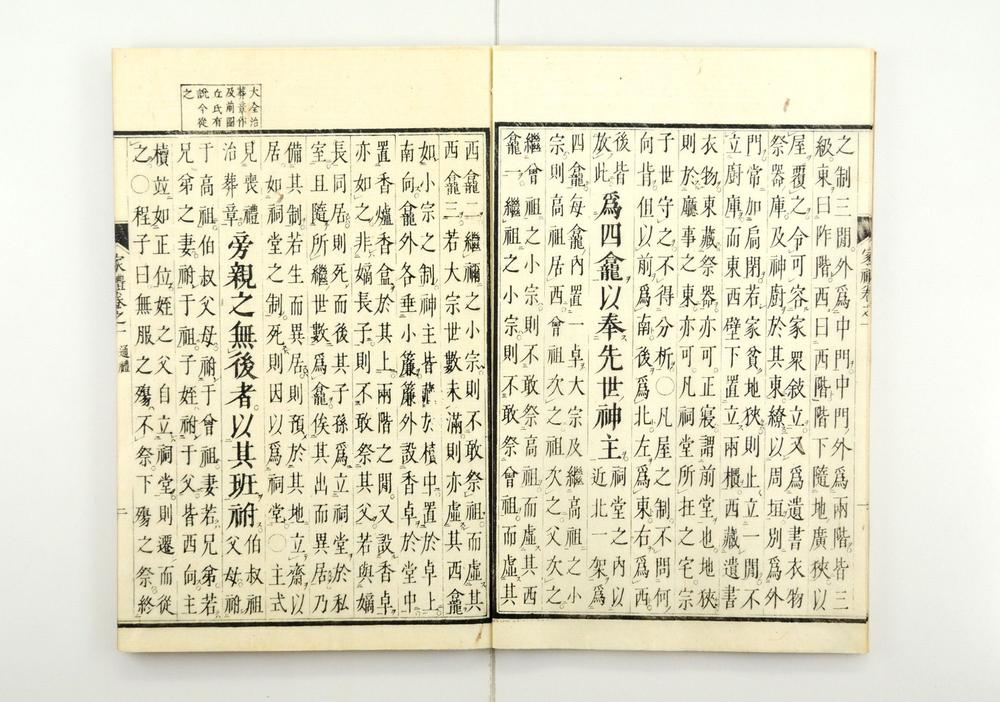 之制三閒外爲中門中門外爲兩階皆三
級東曰阼階西曰西階階下隨地廣狹以
屋覆之令可容家眾敍立又爲遺書衣物
祭器庫及神廚於其東繚以周垣別爲外
門常加扃閉若家貧地狹則止立一閒不
立廚庫而東西壁下置立兩櫃西藏遺書
衣物東藏祭器亦可正寢謂前堂也地狹
則於廳事之東亦可凡祠堂所在之宅宗
子世守之不得分析○凡屋之制不問何
向背但以前爲南後爲北左爲東右爲西
後皆放此
爲四龕以奉先世神主
祠堂之內以近北一架爲
四龕每龕內置一卓大宗及繼高祖之小
宗則高祖居西曾祖次之祖次之父次之
繼曾祖之小宗則不敢祭高祖而虛其西
龕一繼祖之小宗則不敢祭曾祖而虛其
西龕二繼禰之小宗則不敢祭祖而虛其
西龕三若大宗世數未滿則亦虛其西龕
如小宗之制神主皆藏於櫝中置於卓上
南向龕外各垂小簾簾外設香卓於堂中
置香爐香盒於其上兩階之閒又設香卓
亦如之非嫡長子則不敢祭其父若與嫡
長同居則死而後其子孫爲立祠堂於私
室且隨所繼世數爲龕俟其出而異居乃
備其制若生而異居則預於其地立齋以
居如祠堂之制死則因以爲祠堂○主式
見喪禮治葬章
旁親之無後者以其班祔
伯叔祖父母祔
于高祖伯叔父母祔于曾祖妻若兄弟若
兄弟之妻祔于祖子姪祔于父皆西向主
櫝並如正位姪之父自立祠堂則遷而從
之○程子曰無服之殤不祭下殤之祭終
大全治
葬章作
及前圖
在氏有
說今從
之
家禮卷之一
通禮
二